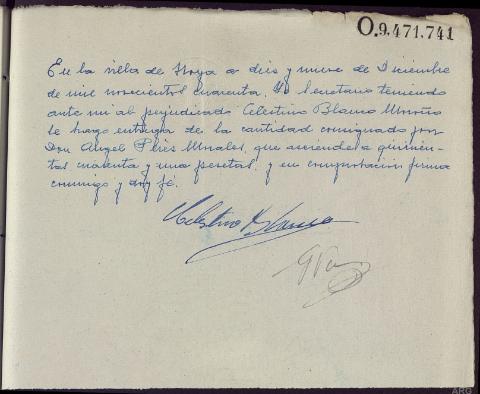 O.9.471.741
En la villa de Noya a dies y nueve de Diciembre
de mil novecientos cuarenta. Yo Secretario teniendo
ante mi al perjudicado Celestino Blanco Moroño
le hago entrega de la cantidad consignada por
Don Angel Peres Morales, que asciende a quinien-
tas cuarenta y una pesetas, y en comprobación firma
conmigo y doy fé.
Celestino Blanco
ARG